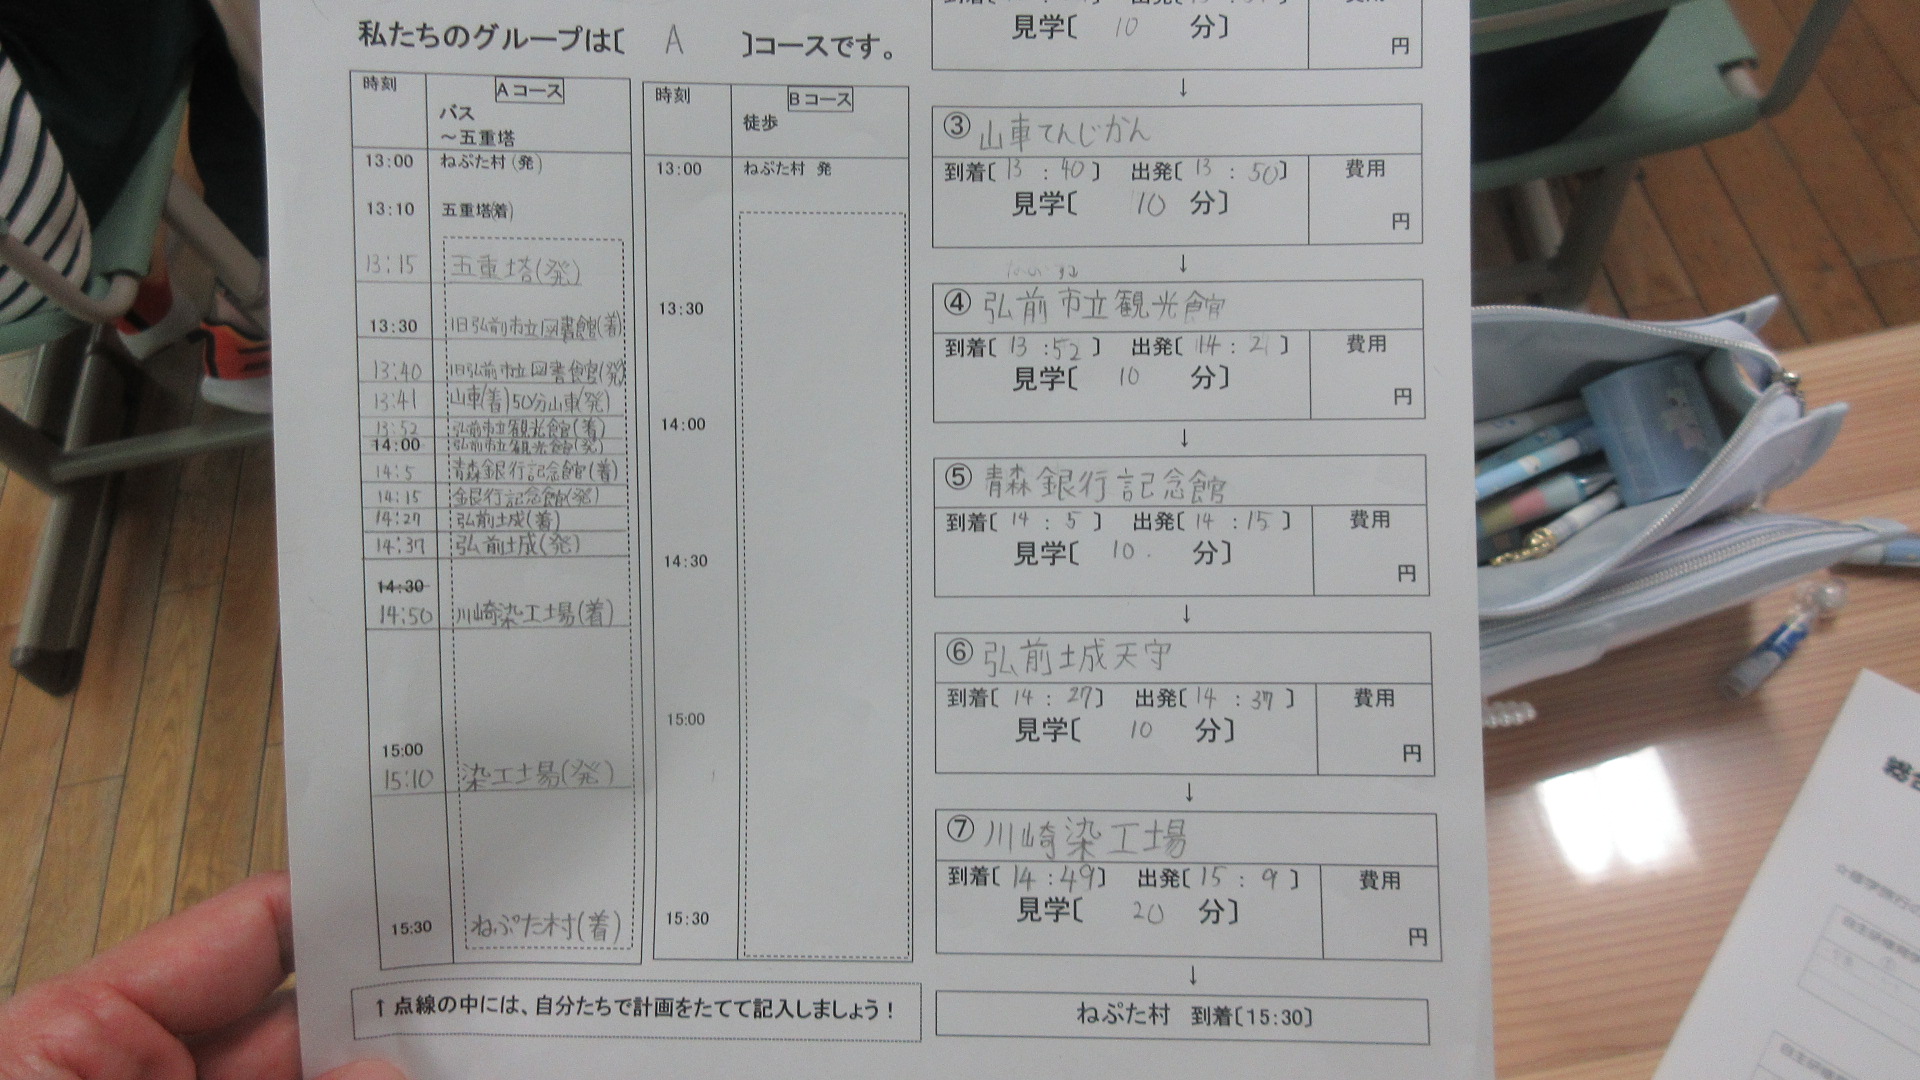 私たちのグループは〔 A 〕コースです。
時刻 Aコース
バス
～五重塔
13:00 ねぷた村(発)
13:10 五重塔(着)
13:15 五重塔(発)
13:30 旧弘前市立図書館(着)
13:40 旧弘前市立図書館(発)
13:41 山車(着)50分山車(発)
13:52 弘前市立観光館(着)
14:00 弘前市立観光館(発)
14:5 青森銀行記念館(着)
14:15 銀行記念館(発)
14:27 弘前城(着)
14:37 弘前城(発)
14:30
14:50 川崎染工場(着)
15:00
15:10 染工場(発)
15:30 ねぷた村(着)
時刻 Bコース
徒歩
13:00 ねぷた村 発
13:30
14:00
14:30
15:00
15:30
↑点線の中には、自分たちで計画をたてて記入しましょう！
見学〔 10 分〕
円
↓
③山車てんじかん
到着〔13:40〕 出発〔13:50〕 費用
見学〔 10 分〕
円
↓
④弘前市立観光館
到着〔13:52〕 出発〔14:21〕 費用
見学〔 10 分〕
円
↓
⑤青森銀行記念館
到着〔14:5〕 出発〔14:15〕 費用
見学〔 10. 分〕
円
↓
⑥弘前城天守
到着〔14:27〕 出発〔14:37〕 費用
見学〔 10 分〕
円
↓
⑦川崎染工場
到着〔14:49〕 出発〔15:9〕 費用
見学〔 20 分〕
円
↓
ねぷた村 到着〔15:30〕